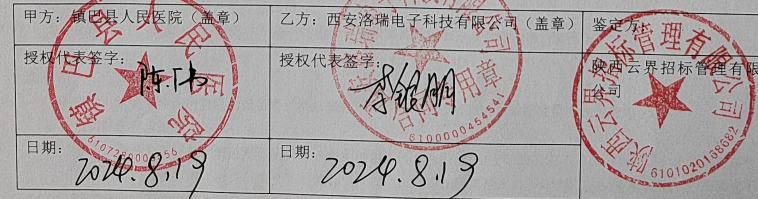 甲方：镇巴县人民医院（盖章）
乙方：西安洛瑞电子科技有限公司（盖章）
鉴定方：
授权代表签字：
授权代表签字：
李银朋
陕西云界招标管理有限
公司
日期：
2024.8.19
日期：
2024.8.19
镇巴县人民医院
合同专用章
6100000454541
陕西云界招标管理有限公司
6101020168682